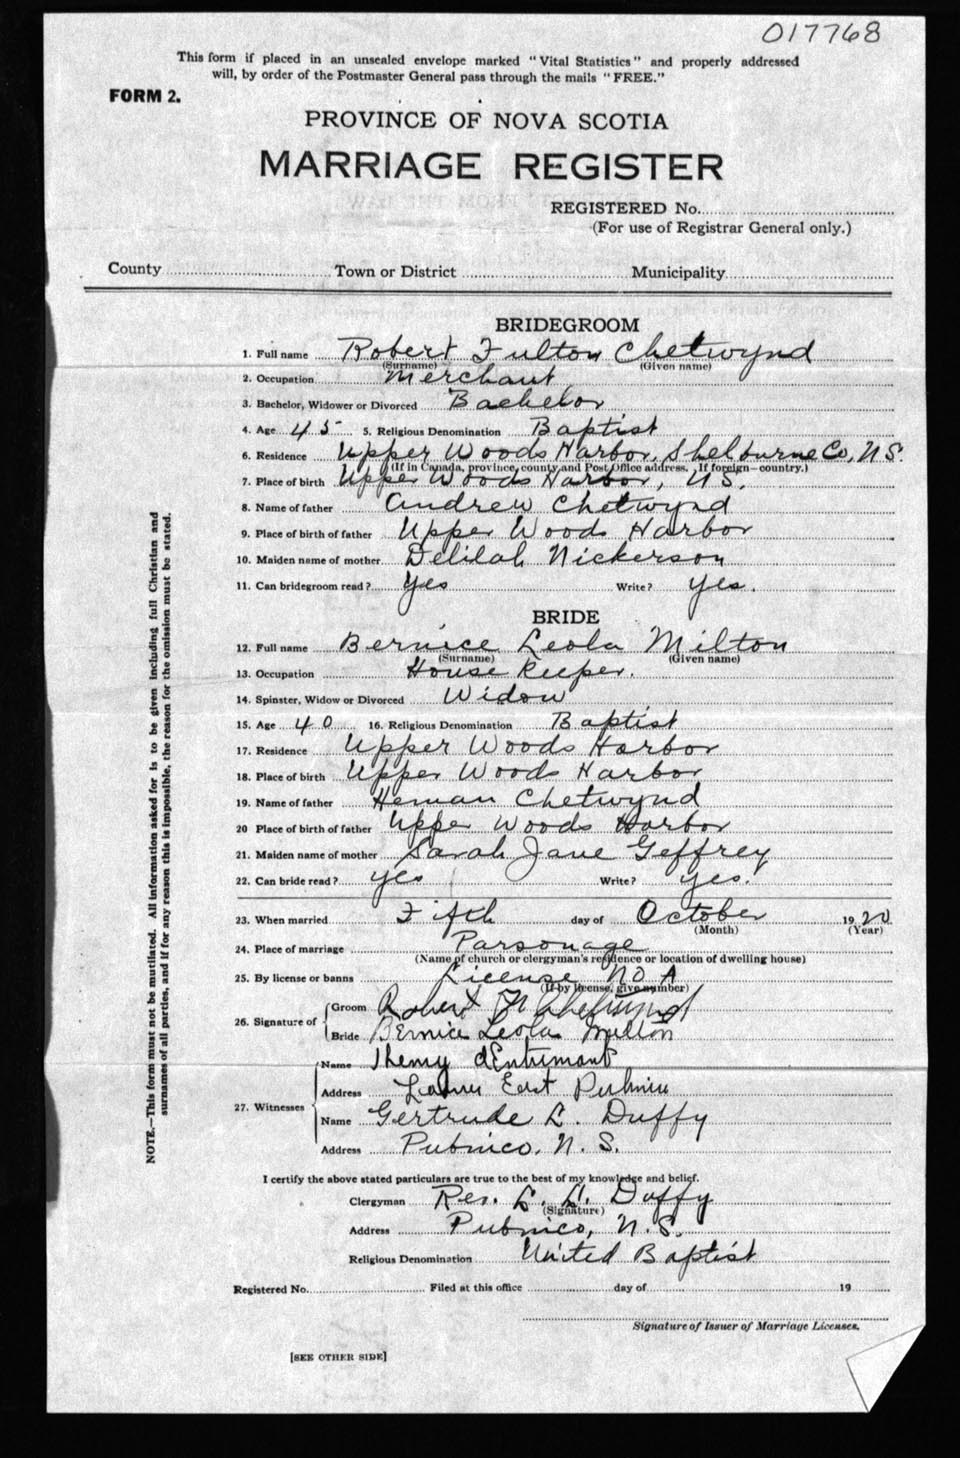 017768
This form if placed in an unsealed envelope marked "Vital Statistics" and properly addressed
will, by order of the Postmaster General pass through the mails "FREE."
FORM 2.
PROVINCE OF NOVA SCOTIA
MARRIAGE REGISTER
REGISTERED No.
(For use of Registrar General only.)
County Town or District Municipality
BRIDEGROOM
1. Full name Robert Fulton Chetwynd
(Surname) (Given name)
2. Occupation Merchant
3. Bachelor, Widower or Divorced Bachelor
4. Age 45 5. Religious Denomination Baptist
6. Residence Upper Woods Harbor, Shelburne Co, N.S.
(If in Canada, province, county and Post Office address. If foreign—country.)
7. Place of birth Upper Woods Harbor, N.S.
8. Name of father Andrew Chetwynd
9. Place of birth of father Upper Woods Harbor
10. Maiden name of mother Delilah Nickerson
11. Can bridegroom read? Yes Write? Yes.
BRIDE
12. Full name Bernice Leola Milton
(Surname) (Given name)
13. Occupation House Keeper.
14. Spinster, Widow or Divorced Widow
15. Age 40 16. Religious Denomination Baptist
17. Residence Upper Woods Harbor
18. Place of birth Upper Woods Harbor
19. Name of father Heman Chetwynd
20 Place of birth of father Upper Woods Harbor
21. Maiden name of mother Sarah Jane Geffrey
22. Can bride read? Yes Write? Yes.
23. When married Fifth day of October 1920
(Month) (Year)
24. Place of marriage Parsonage
(Name of church or clergyman's residence or location of dwelling house)
25. By license or banns License No A
(If by license, give number)
26. Signature of Groom Robert F Chetwynd
Bride Bernice Leola Milton
27. Witnesses Name Henry d'Entremont
Address East Pubnico
Name Gertrude L. Duffy
Address Pubnico, N.S.
I certify the above stated particulars are true to the best of my knowledge and belief.
Clergyman Rev. L. Duffy
(Signature)
Address Pubnico, N.S.
Religious Denomination United Baptist
Registered No. Filed at this office day of 19
Signature of Issuer of Marriage Licenses.
[SEE OTHER SIDE]
NOTE.—This form must not be mutilated. All information asked for is to be given including full Christian and
surnames of all parties, and if for any reason this is impossible, the reason for the omission must be stated.